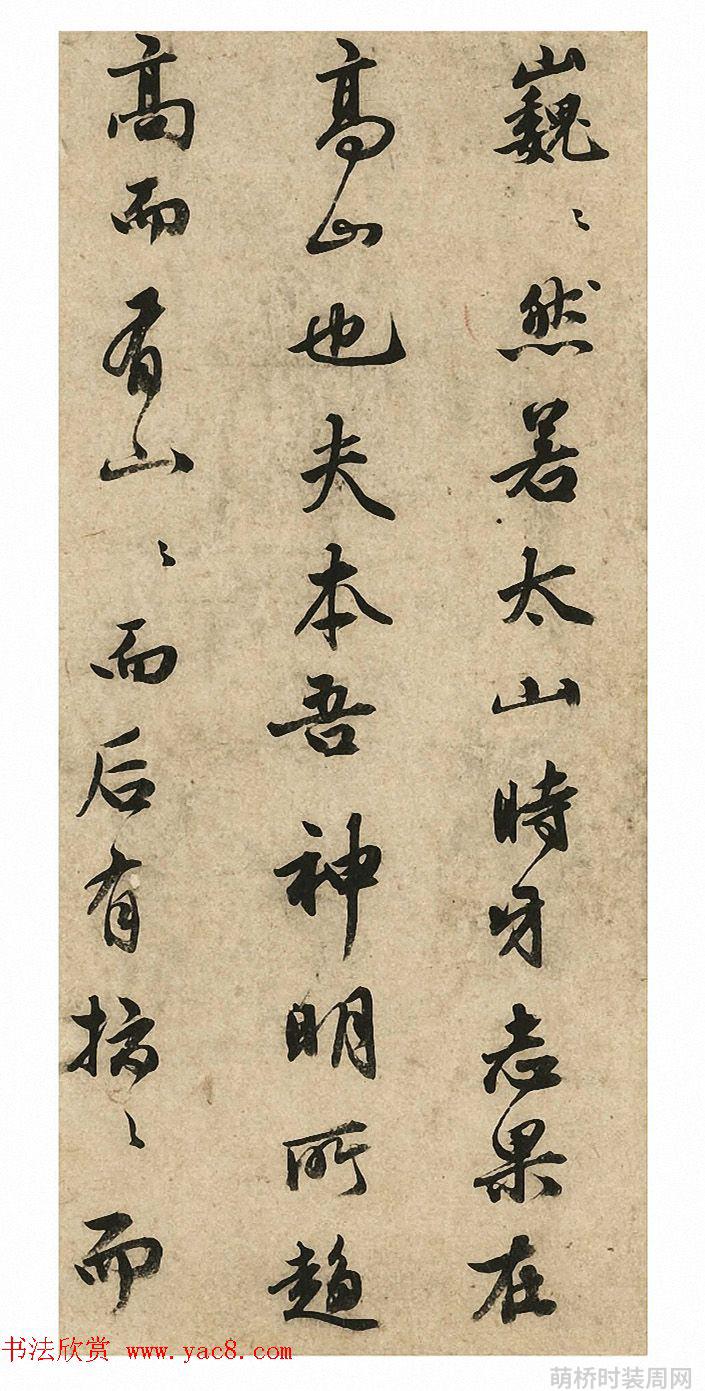 巍〻然若太山時牙志果在
高山也夫本吾神明所趨
高而有山〻而后有〻而
书法欣赏 www.yac8.com
萌桥时装周网